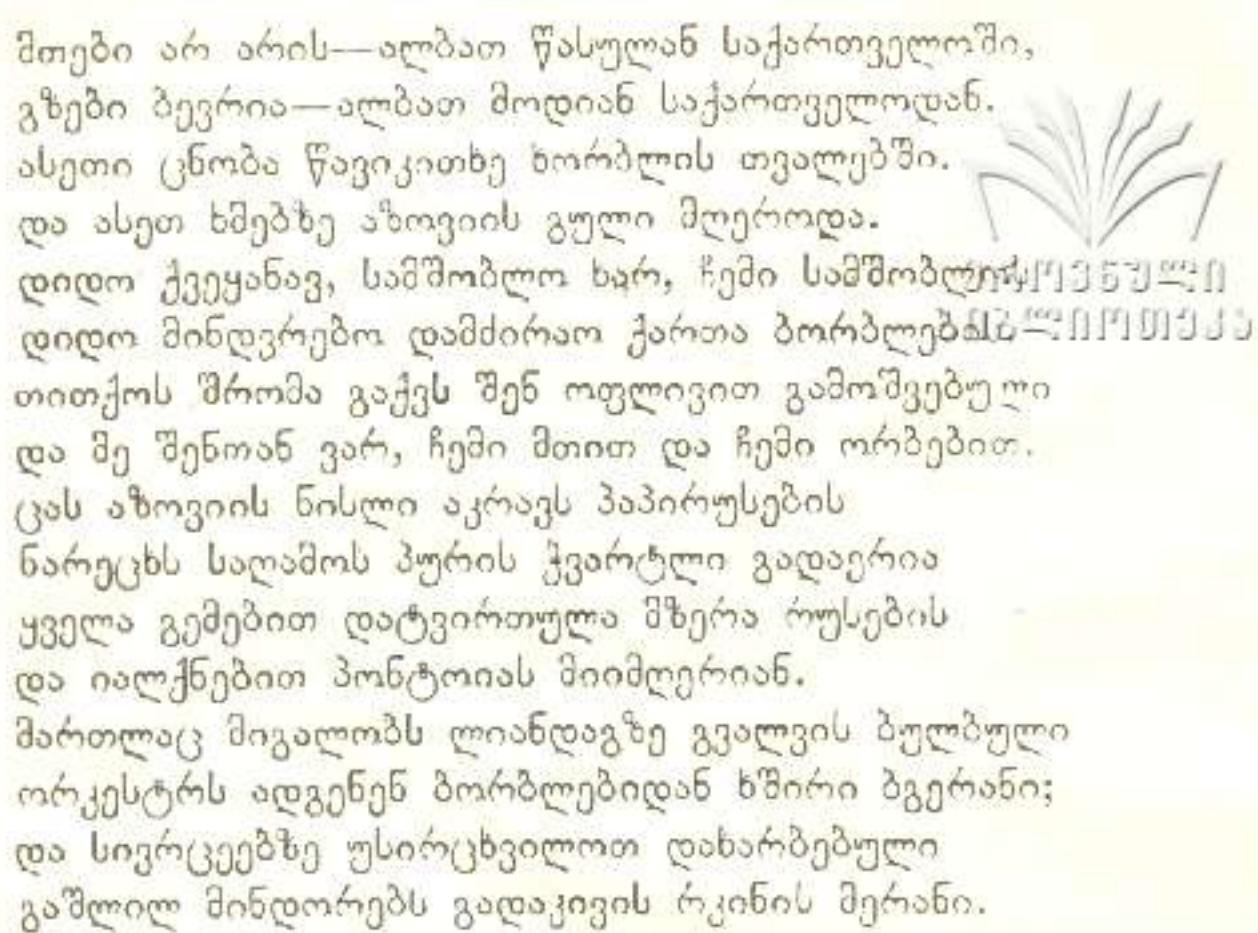 მთები არ არის—ალბათ წასულან საქართველოში,
გზები ბევრია—ალბათ მოდიან საქართველოდან.
ასეთი ცნობა წავიკითხე ხორბლის თვალებში.
და ასეთ ხმებზე აზოვიის გული მღეროდა.
დიდო ქვეყანავ, სამშობლო ხარ, ჩემი
დიდო მინდვრებო დამძირაო ქართა
თითქოს შრომა გაქვს შენ ოფლივით გამოშვებული
და მე შენთან ვარ, ჩემი მთით და ჩემი ორბებით.
ცას აზოვიის ნისლი აკრავს პაპირუსების
ნარეცხს საღამოს პურის ჭვარტლი გადაერია
ყველა გემებით დატვირთულა მზერა რუსების
და იალქნებით პონტოიას მიიმღერიან.
მართლაც მიგალობს ლიანდაგზე გვალვის ბულბული
ორკესტრს ადგენენ ბორბლებიდან ხშირი ბგერანი;
და სივრცეებზე უსირცხვილოთ დახარბებული
გაშლილ მინდორებს გადაკივის რკინის მერანი.
ეროვნული
ბიბლიოთეკა